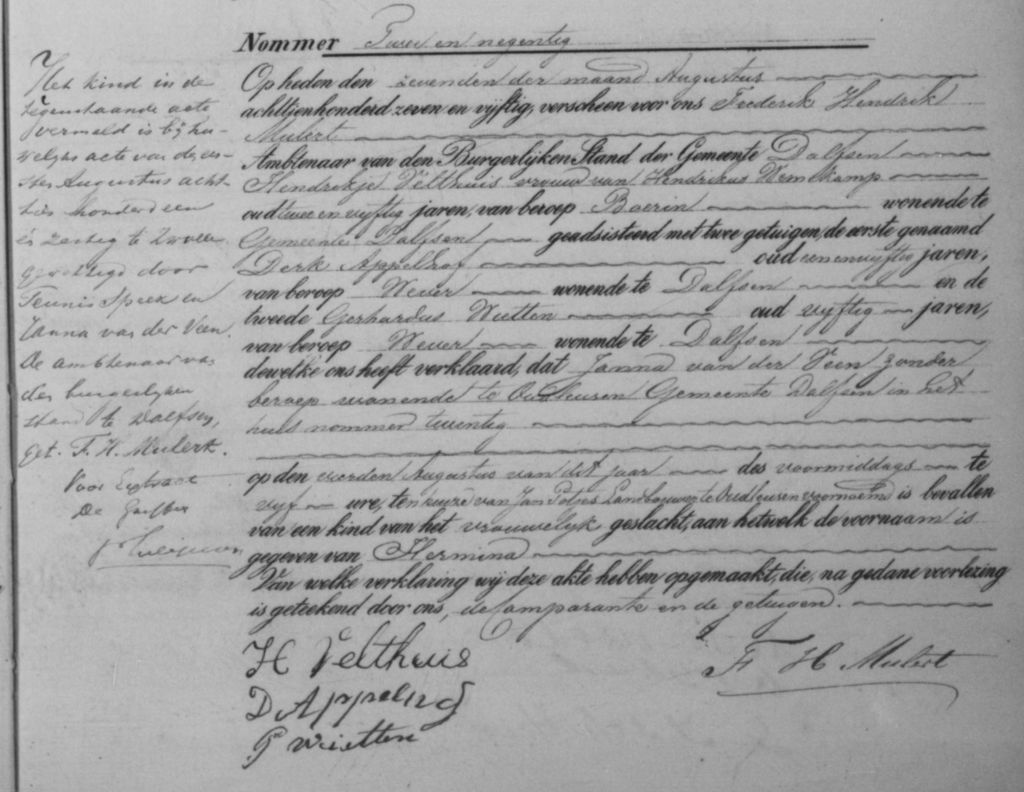 Nommer Twee en negentig
Op heden den zevenden der maand Augustus
achttienhonderd zeven en vijftig, verscheen voor ons Frederik Hendrik
Mulert
Ambtenaar van den Burgerlijken Stand der Gemeente Dalfsen
Hendrikje Velthuis vrouw van Hendrikus Wemekamp
oud twee en vijftig jaren, van beroep Boerin wonende te
Gemeente Dalfsen geadsisteerd met twee getuigen, de eerste genaamd
Derk Appelhof oud een en vijftig jaren,
van beroep Wever wonende te Dalfsen en de
tweede Gerhardus Wietten oud vijftig jaren,
van beroep Wever wonende te Dalfsen
dewelke ons heeft verklaard, dat Janna van der Veen zonder
beroep wonende te Oudleusen Gemeente Dalfsen in het
huis nommer twintig
op den vierden Augustus van dit jaar des voormiddags te
vijf ure, ten huize van Jan Potjes Landbouwer te Oudleusen voornoemd is bevallen
van een kind van het vrouwelyk geslacht, aan hetwelk de voornaam is
gegeven van Hermina
Van welke verklaring wij deze akte hebben opgemaakt, die, na gedane voorlezing
is geteekend door ons, de Comparante en de getuigen.
H Velthuis
F H Mulert
D Appelhof
G Wietten
Het kind in de
tegenstaande acte
vermeld is bij hu-
welijks acte van den eer-
sten Augustus acht-
tien honderd een
en zestig te Zwolle
gewettigd door
Teunis Speek en
Janna van der Veen
De ambtenaar van
den burgerlijken
stand te Dalfsen,
get. F. H. Mulert.
Voor Extract
De Griffier